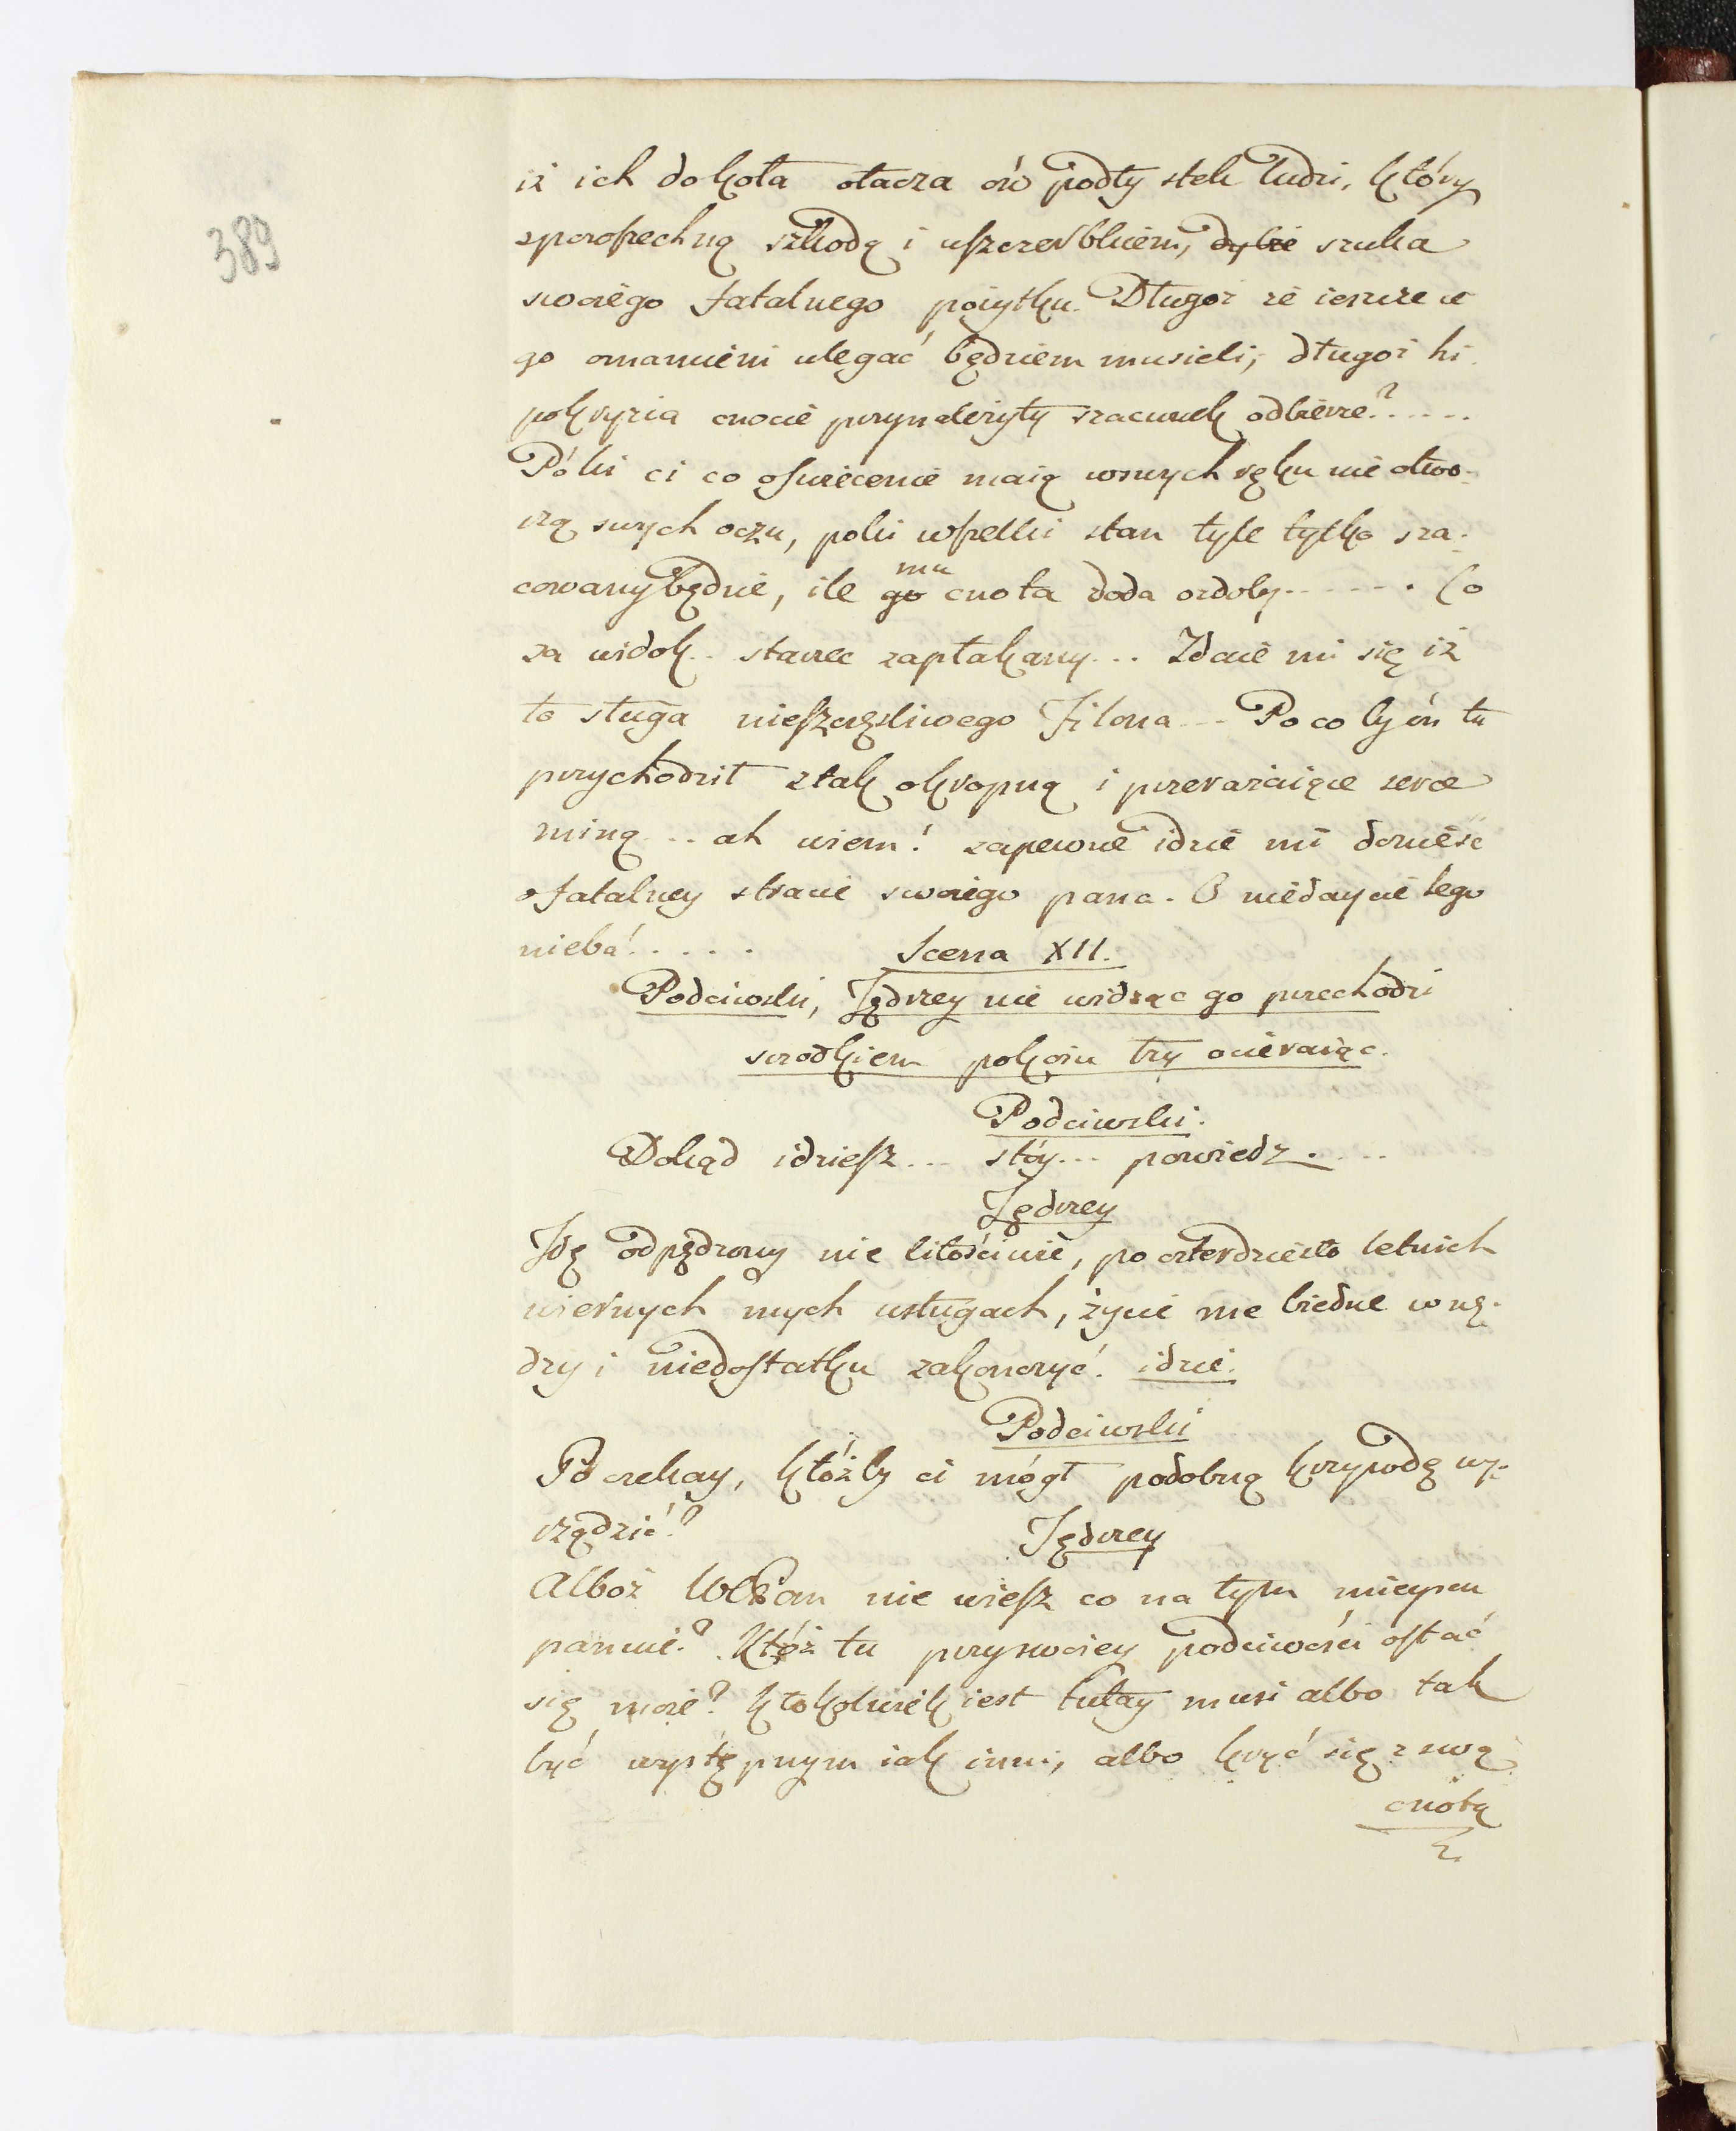 389
iż ich dokoła otacza ów podły stek ludzi, który
spowszechną szkodą i uszczerbkiem, dybie szuka
swoiego fatalnego pożytku. Długoż ie ieszcze w
go omamieni ulegać będziem musieli, długoż hi
pokryzia cnocie przynależyty szacunek odbierze?.....
Póki ci co oświecenie maią wswych ręku nie otwo-
rzą swych oczu, poki wszelki stan tyle tylko sza-
cowany będzie, ile go mu cnota doda ozdoby...... Co
za widok.. starzec zapłakany... Zdaie mi się iż
to sługa nieszczęśliwego Filona... Po co by ón tu
przychodził ztak okropną i przerażaiące serce
miną... ah wiem! zapewne idzie mi donieść
o fatalney stracie swoiego pana. O niedaycie tego
nieba!.....
Scena XII.
Podciwski, Jędrzey nie widząc go przechodzi
szrodkiem pokoiu łzy ocieraiąc.
Podciwski.
Dokąd idziesz... stóy... powiedz....
Jędrzey
Idę odpędzony nie litościwie, po czterdziesto letnich
wiernych mych usługach, życie me biedne w nę-
dzy i niedostatku zakończyć. idzie.
Podciwski
Poczekay, któżby ci mógł podobną krzywdę wy-
rządzić?
Jędrzey
Alboż WCPan nie wiesz co na tym mieyscu
panuie? Któż tu przyswoiey podciwości ostać
się może? ktokolwiek iest tutay musi albo tak
być występnym iak inni, albo kryć się z swą
cnotą